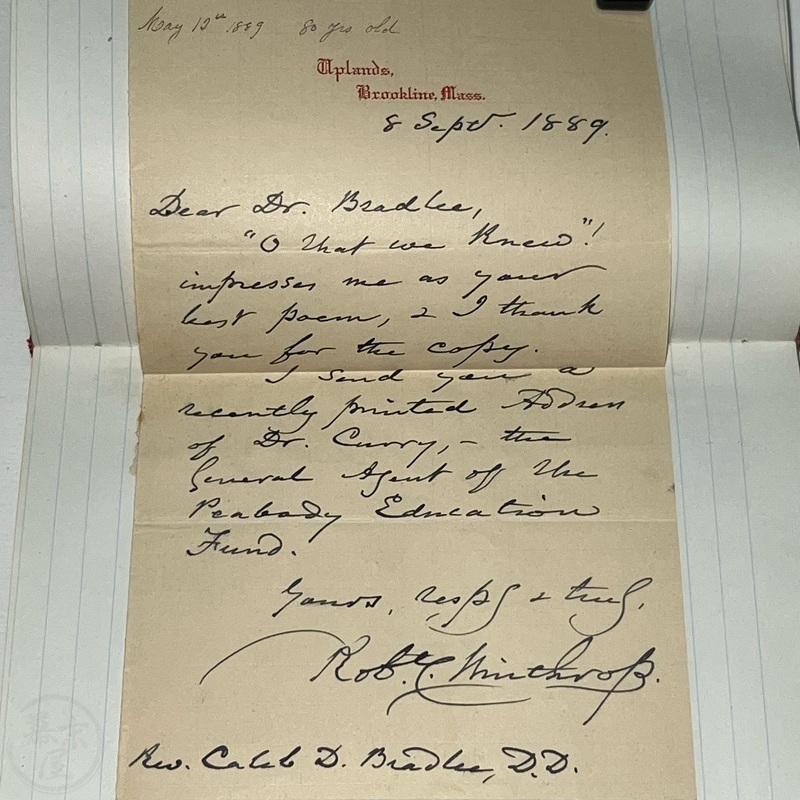 May 12th 1889 80 yrs old
Uplands,
Brookline, Mass.
8 Sept. 1889.
Dear Dr. Bradlee,
"O that we Knew"!
impresses me as your
best poem, & I thank
you for the copy.
I send you a
recently printed Address
of Dr. Curry, - the
General Agent of the
Peabody Education
Fund.
Yours, respy & truly,
Robt. C. Winthrop.
Rev. Caleb D. Bradlee, D.D.